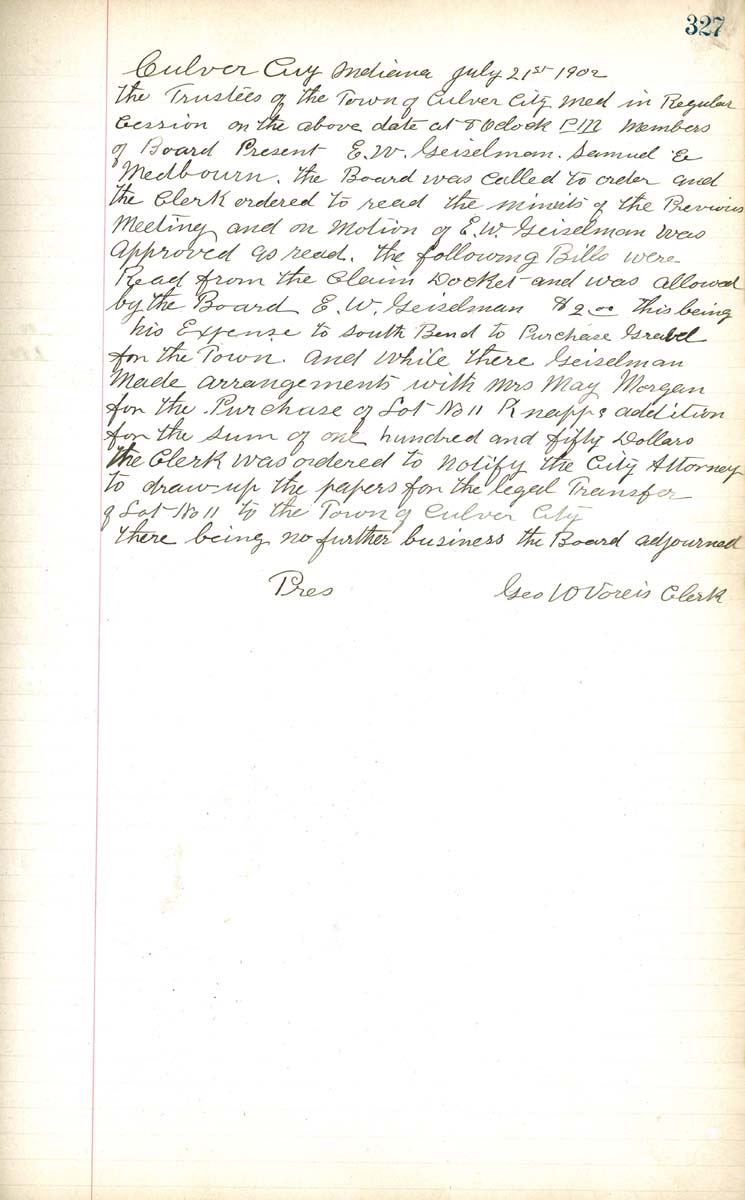 327
Culver City Indiana July 21st 1902
the Trustees of the Town of Culver City med in Regular
Cession on the above date at 8 Oclock P M Members
of Board Present E. W. Geiselman. Samuel E
Medbourn. the Board was called to order and
the Clerk ordered to read the minits of the Previous
Meeting and on Motion of E. W. Geiselman was
approved as read. the following Bills were
Read from the Claim Docket and was allowed
by the Board E. W. Geiselman $2.00 this being
his Expense to South Bend to Purchase Gravel
for the Town. and while there Geiselman
Made arrangements with Mrs May Morgan
for the Purchase of Lot No 11 Knapps addition
for the sum of one hundred and fifty Dollars
the Clerk was ordered to notify the City Attorney
to draw up the papers for the legal Transfer
of Lot No 11 to the Town of Culver City
there being no further business the Board adjourned
Pres Geo W Voreis Clerk